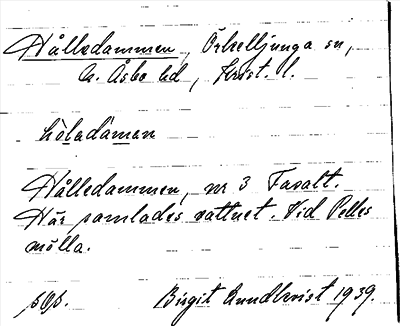 Hålledammen, Örkelljunga sn,
N. Åsbo hd, Krist. l.
hòladáman
Hålledammen, nr 3 Fasalt.
Här samlades vattnet. Vid Pelles
mölla.
Birgit Lundkvist 1939.